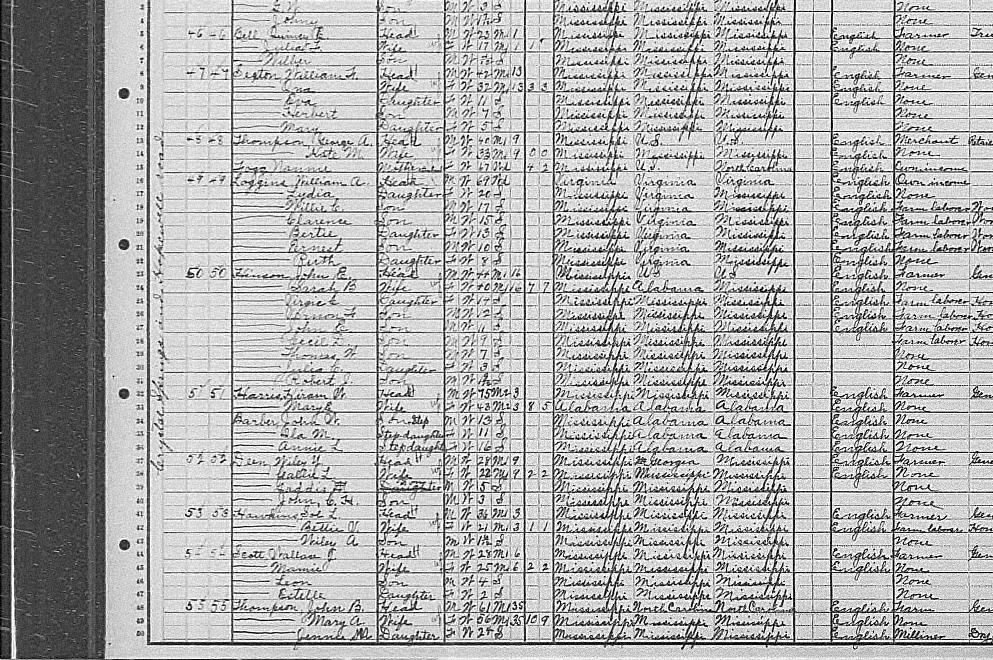 3 Son M W 3 S Mississippi Mississippi Mississippi None
4 Johny Son M W S Mississippi Mississippi Mississippi None
5 46 46 Bell Head M W 23 M1 1 Mississippi Mississippi Mississippi English Farmer
6 Julia F. Wife F W 17 M1 1 1 Mississippi Mississippi Mississippi English None
7 Wilber Son M W S Mississippi Mississippi Mississippi None
8 47 47 Sexton William H. Head M W 42 M1 13 Mississippi Mississippi Mississippi English Farmer Gen
9 Ona Wife F W 32 M1 13 3 3 Mississippi Mississippi Mississippi English None
10 Eva Daughter F W 11 S Mississippi Mississippi Mississippi English None
11 Herbert Son M W 7 S Mississippi Mississippi Mississippi None
12 Mary Daughter F W 5 S Mississippi Mississippi Mississippi None
13 48 48 Thompson George A. Head M W 40 M1 9 Mississippi U.S. U.S. English Merchant Retail
14 Kate M. Wife F W 33 M1 9 0 0 Mississippi Mississippi Mississippi English None
15 Nannie F W 67 Wd 4 2 Mississippi U.S. North Carolina English Own income
16 49 49 Loggins William A. Head M W 69 Wd Virginia Virginia Virginia English Own income
17 Lydia Daughter F W 20 S Mississippi Virginia Mississippi English None
18 Willie Son M W 17 S Mississippi Virginia Mississippi English Farm laborer
19 Clarence Son M W 15 S Mississippi Virginia Mississippi English Farm laborer
20 Bertie Daughter F W 13 S Mississippi Virginia Mississippi English Farm laborer
21 Ernest Son M W 10 S Mississippi Virginia Mississippi English Farm laborer
22 Ruth Daughter F W 8 S Mississippi Virginia Mississippi English None
23 50 50 Hinson John E. Head M W 44 M1 16 Mississippi U.S. U.S. English Farmer Gen
24 Sarah B Wife F W 40 M1 16 7 7 Mississippi Alabama Mississippi English None
25 Virgie E. Daughter F W 14 S Mississippi Mississippi Mississippi English Farm laborer Hom
26 Vernon F Son M W 12 S Mississippi Mississippi Mississippi English Farm laborer Hom
27 John E. Son M W 11 S Mississippi Mississippi Mississippi English Farm laborer Hom
28 Cecil D. Son M W 9 S Mississippi Mississippi Mississippi Farm laborer Hom
29 Thomas W. Son M W 7 S Mississippi Mississippi Mississippi None
30 Julia C. Daughter F W 3 S Mississippi Mississippi Mississippi None
31 Robert J. Son M W S Mississippi Mississippi Mississippi None
32 51 51 Harris Hiram W. Head M W 75 M2 3 Mississippi Mississippi Mississippi English Farmer Gen
33 Mary E Wife F W 43 M2 3 8 5 Alabama Alabama Alabama English None
34 Barber John W. Son Step M W 13 S Mississippi Alabama Alabama English None
35 Ila M. Step daughter F W 11 S Mississippi Alabama Alabama English None
36 Annie L Step daughter F W 16 S Mississippi Alabama Alabama English None
37 52 52 Deen Wiley Y. Head M W 28 M1 9 Mississippi Georgia Mississippi English Farmer Gene
38 L. Wife F W 22 M1 9 2 2 Mississippi Mississippi Mississippi English None
39 Daughter M W 5 S Mississippi Mississippi Mississippi None
40 John E. H. Son M W 3 S Mississippi Mississippi Mississippi None
41 53 53 Hawkins Joe L Head M W 36 M1 3 Mississippi Mississippi Mississippi English Farmer Gen
42 Bettie V. Wife F W 21 M1 3 1 1 Mississippi Mississippi Mississippi English Farm laborer Hom
43 Wiley A Son M W S Mississippi Mississippi Mississippi None
44 54 54 Scott Wallace J. Head M W 28 M1 6 Mississippi Mississippi Mississippi English Farmer Gen
45 Mamie Wife F W 25 M1 6 2 2 Mississippi Mississippi Mississippi English None
46 Leon Son M W 4 S Mississippi Mississippi Mississippi None
47 Estelle Daughter F W 2 S Mississippi Mississippi Mississippi None
48 55 55 Thompson John B. Head M W 61 M1 35 Mississippi North Carolina North Carolina English Farm Gen
49 Mary A. Wife F W 56 M1 35 10 9 Mississippi Mississippi Mississippi English None
50 Jennie M. Daughter F W 27 S Mississippi Mississippi Mississippi English Milliner Dry
Crystal Springs and Hopewell road